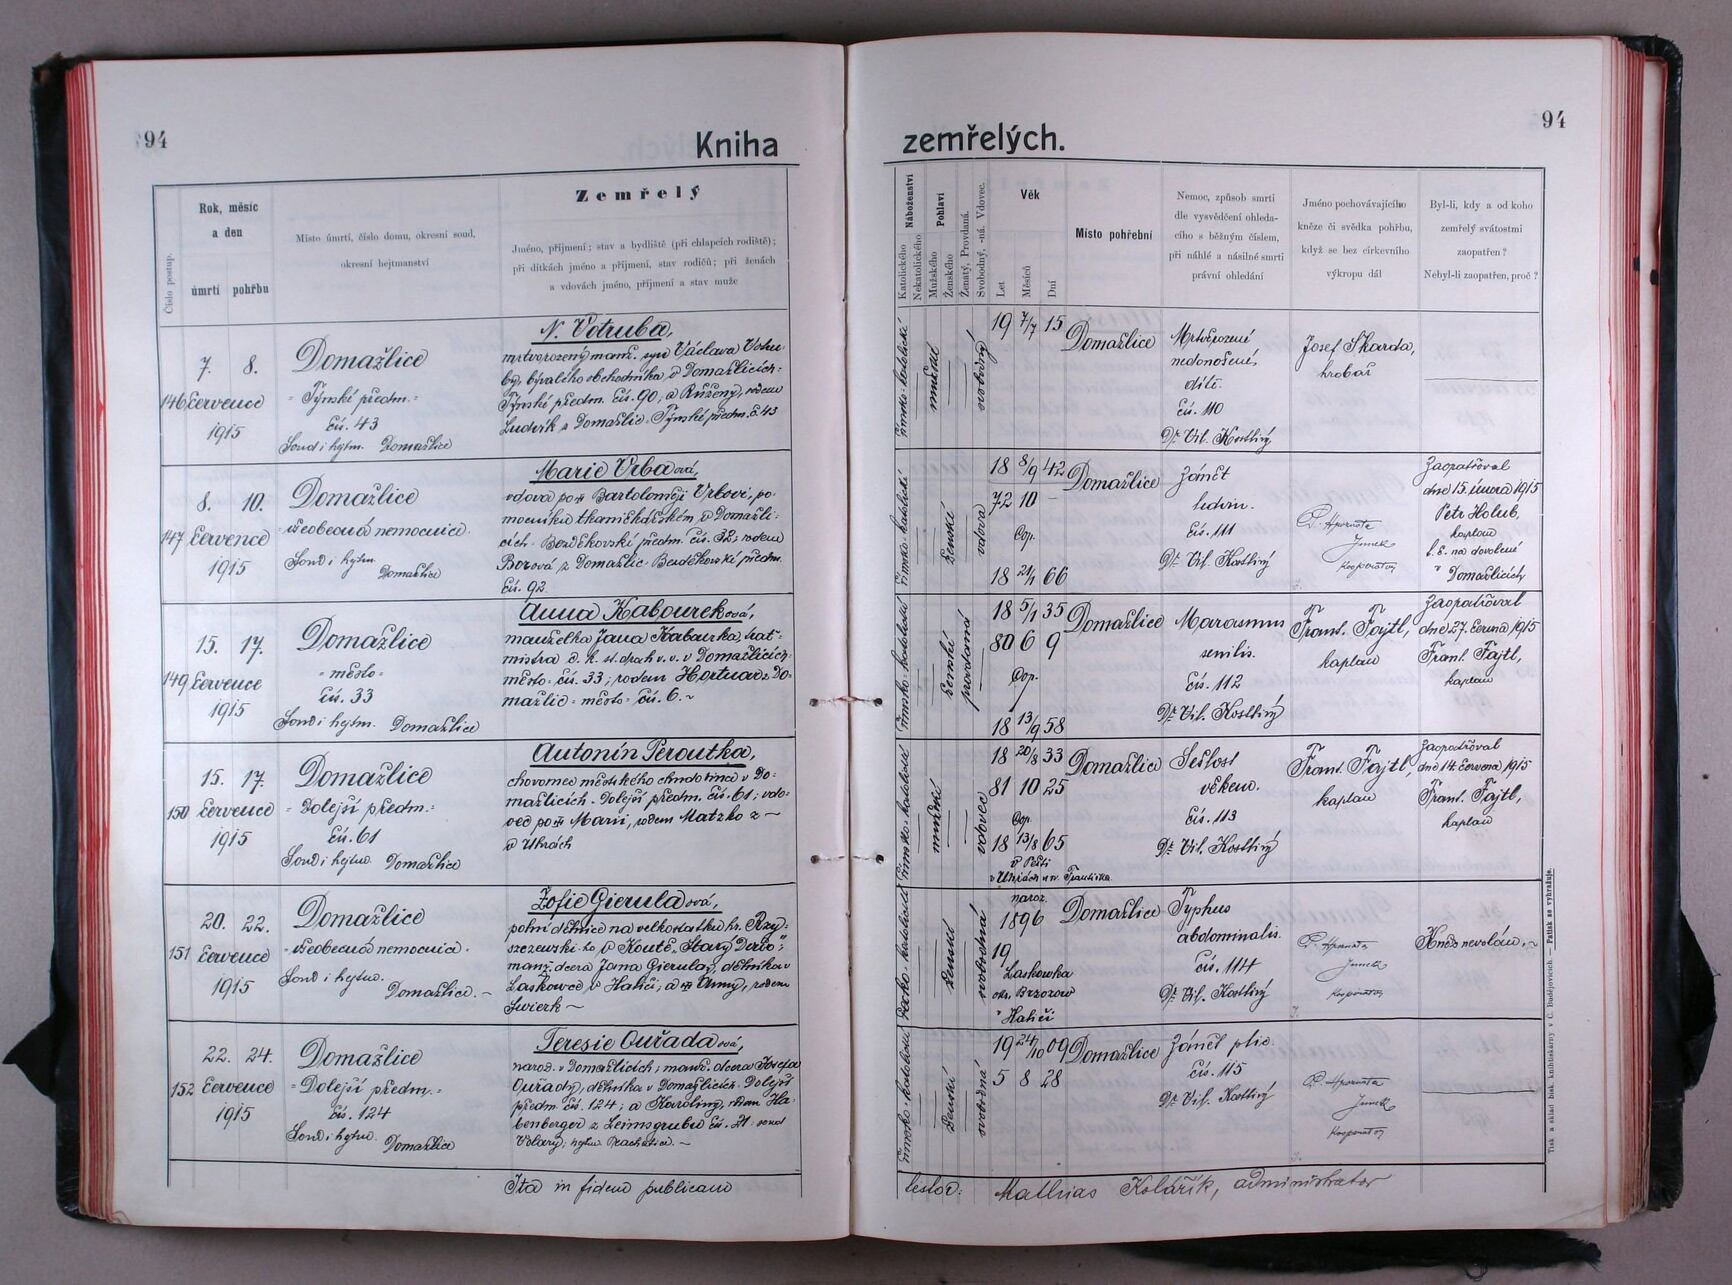 94
Kniha
Číslo postup.
Rok, měsíc
a den
úmrtí pohřbu
Místo úmrtí, číslo domu, okresní soud,
okresní hejtmanství
Zemřelý
Jméno, příjmení; stav a bydliště (při chlapcích rodiště);
při dítkách jméno a příjmení, stav rodičů; při ženách
a vdovách jméno, příjmení a stav muže
146
7. 8.
července
1915
Domažlice
- Týnské předm. -
čís. 43
Soud i hejtm. Domažlice
N. Votruba,
mrtvorozený manž. syn Václava Votru-
by, bývalého obchodníka v Domažlicích-
Týnské předm. čís. 90, a Růženy, rodem
Ludvík z Domažlic. Týnské předm. č. 43
147
8. 10.
července
1915
Domažlice
všeobecná nemocnice.
Soud i hejtm. Domažlice
Marie Vrbaová,
vdova po Bartoloměji Vrbovi, po-
mocníku tkaničkářském v Domažli-
cích - Bezděkovské předm. čís. 32; rodem
Borová z Domažlic - Bezděkovské předm.
čís. 92
149
15. 17.
července
1915
Domažlice
- město -
čís. 33
Soud i hejtm. Domažlice
Anna Kaboureková,
manželka Jana Kabourka, trať-
mistra c. k. st. drah v. v. v Domažlicích-
město - čís. 33; rodem Hortua z Do-
mažlic - město - čís. 6.
150
15. 17.
července
1915
Domažlice
- Dolejší předm.-
čís. 61
Soud i hejtm. Domažlice
Antonín Peroutka,
chovanec městského chudobince v Do-
mažlicích - Dolejší předm. čís. 61; vdo-
vec po Marii, rodem Matzko z
v Uhrách
151
20. 22.
července
1915
Domažlice
- všeobecná nemocnice -
Soud i hejtm. Domažlice. -
Žofie Gierulaová,
polní dělnice na velkostatku hr.
v Koutě
manž. dcera Jana Gieruly, dělníka v
Laskowce v Haliči; a Anny, rodem
Swierk -
152
22. 24.
července
1915
Domažlice
- Dolejší předm. -
čís. 124
Soud i hejtm. Domažlice
Teresie Ouřadaová,
naroz. v Domažlicích; manž. dcera Josefa
Ouřady, dělníka v Domažlicích - Dolejší
předm. čís. 124; a Karoliny, rodem Ha-
benberger z Leimsgrubu čís. 21. soud
Volary; hejtm. Prachatice. -
Ita in fidem publicam
94
zemřelých.
Náboženství
Katolického
Nekatolického
Pohlaví
Mužského
Ženského
Ženatý, Provdaná.
Svobodný, -ná. Vdovec.
Věk
Let
Měsíců
Dní
Místo pohřební
Nemoc, způsob smrti
dle vysvědčení ohleda-
cího s běžným číslem,
při náhlé a násilné smrti
právní ohledání
Jméno pochovávajícího
kněze či svědka pohřbu,
když se bez církevního
výkropu dál
Byl-li, kdy a od koho
zemřelý svátostmi
zaopatřen?
Nebyl-li zaopatřen, proč?
římsko-katolické
mužské
svobodný
19 7/7 15
Domažlice
Mrtvěrozené
nedonošené
dítě.
čís. 110
Dr. Vil. Kostlivý
Josef Skarda,
hrobař
římsko-katolické
ženské
vdova
18 8/9 42
72 10 -
Cop.
18 21/1 66
Domažlice
Zánět
ledvin.
čís. 111
Dr. Vil. Kostlivý
kooperátor
Zaopatřoval
dne 15. února 1915
Petr Holub,
kaplan
t. č. na dovolené
v Domažlicích
římsko-katolické
ženské
provdaná
18 5/1 35
80 6 9
Cop.
18 13/9 58
Domažlice
Marasmus
senilis.
čís. 112
Dr. Vil. Kostlivý
Frant. Fajtl,
kaplan
Zaopatřoval
dne 27. června 1915
Frant. Fajtl,
kaplan
římsko-katolické
mužské
vdovec
18 20/8 33
81 10 25
Cop.
18 13/8 65
v Pešti
v Uhrách
Domažlice
Sešlost
věkem.
čís. 113
Dr. Vil. Kostlivý
Frant. Fajtl,
kaplan
Zaopatřoval
dne 14. června 1915
Frant. Fajtl,
kaplan
ženské
svobodná
naroz.
1896
19
Laskowka
okr. Brzozow
v Haliči
Domažlice
Typhus
abdominalis.
čís. 114
Dr. Vil. Kostlivý
kooperátor
Kněz nevolán.
římsko-katolické
ženské
svobodná
19 24/10 09
5 8 28
Domažlice
Zánět plic
čís. 115
Dr. Vil. Kostlivý
kooperátor
Mathias Kolářík, administrator
Tisk a sklad bisk. knihtiskárny v Č. Budějovicích. — Patisk se vyhražuje.